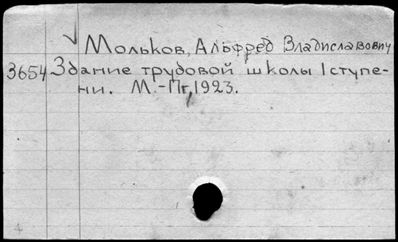 Мольков, Альфред Владиславович
3654 Здание трудовой школы I ступе-
ни. М.-Пг, 1923.